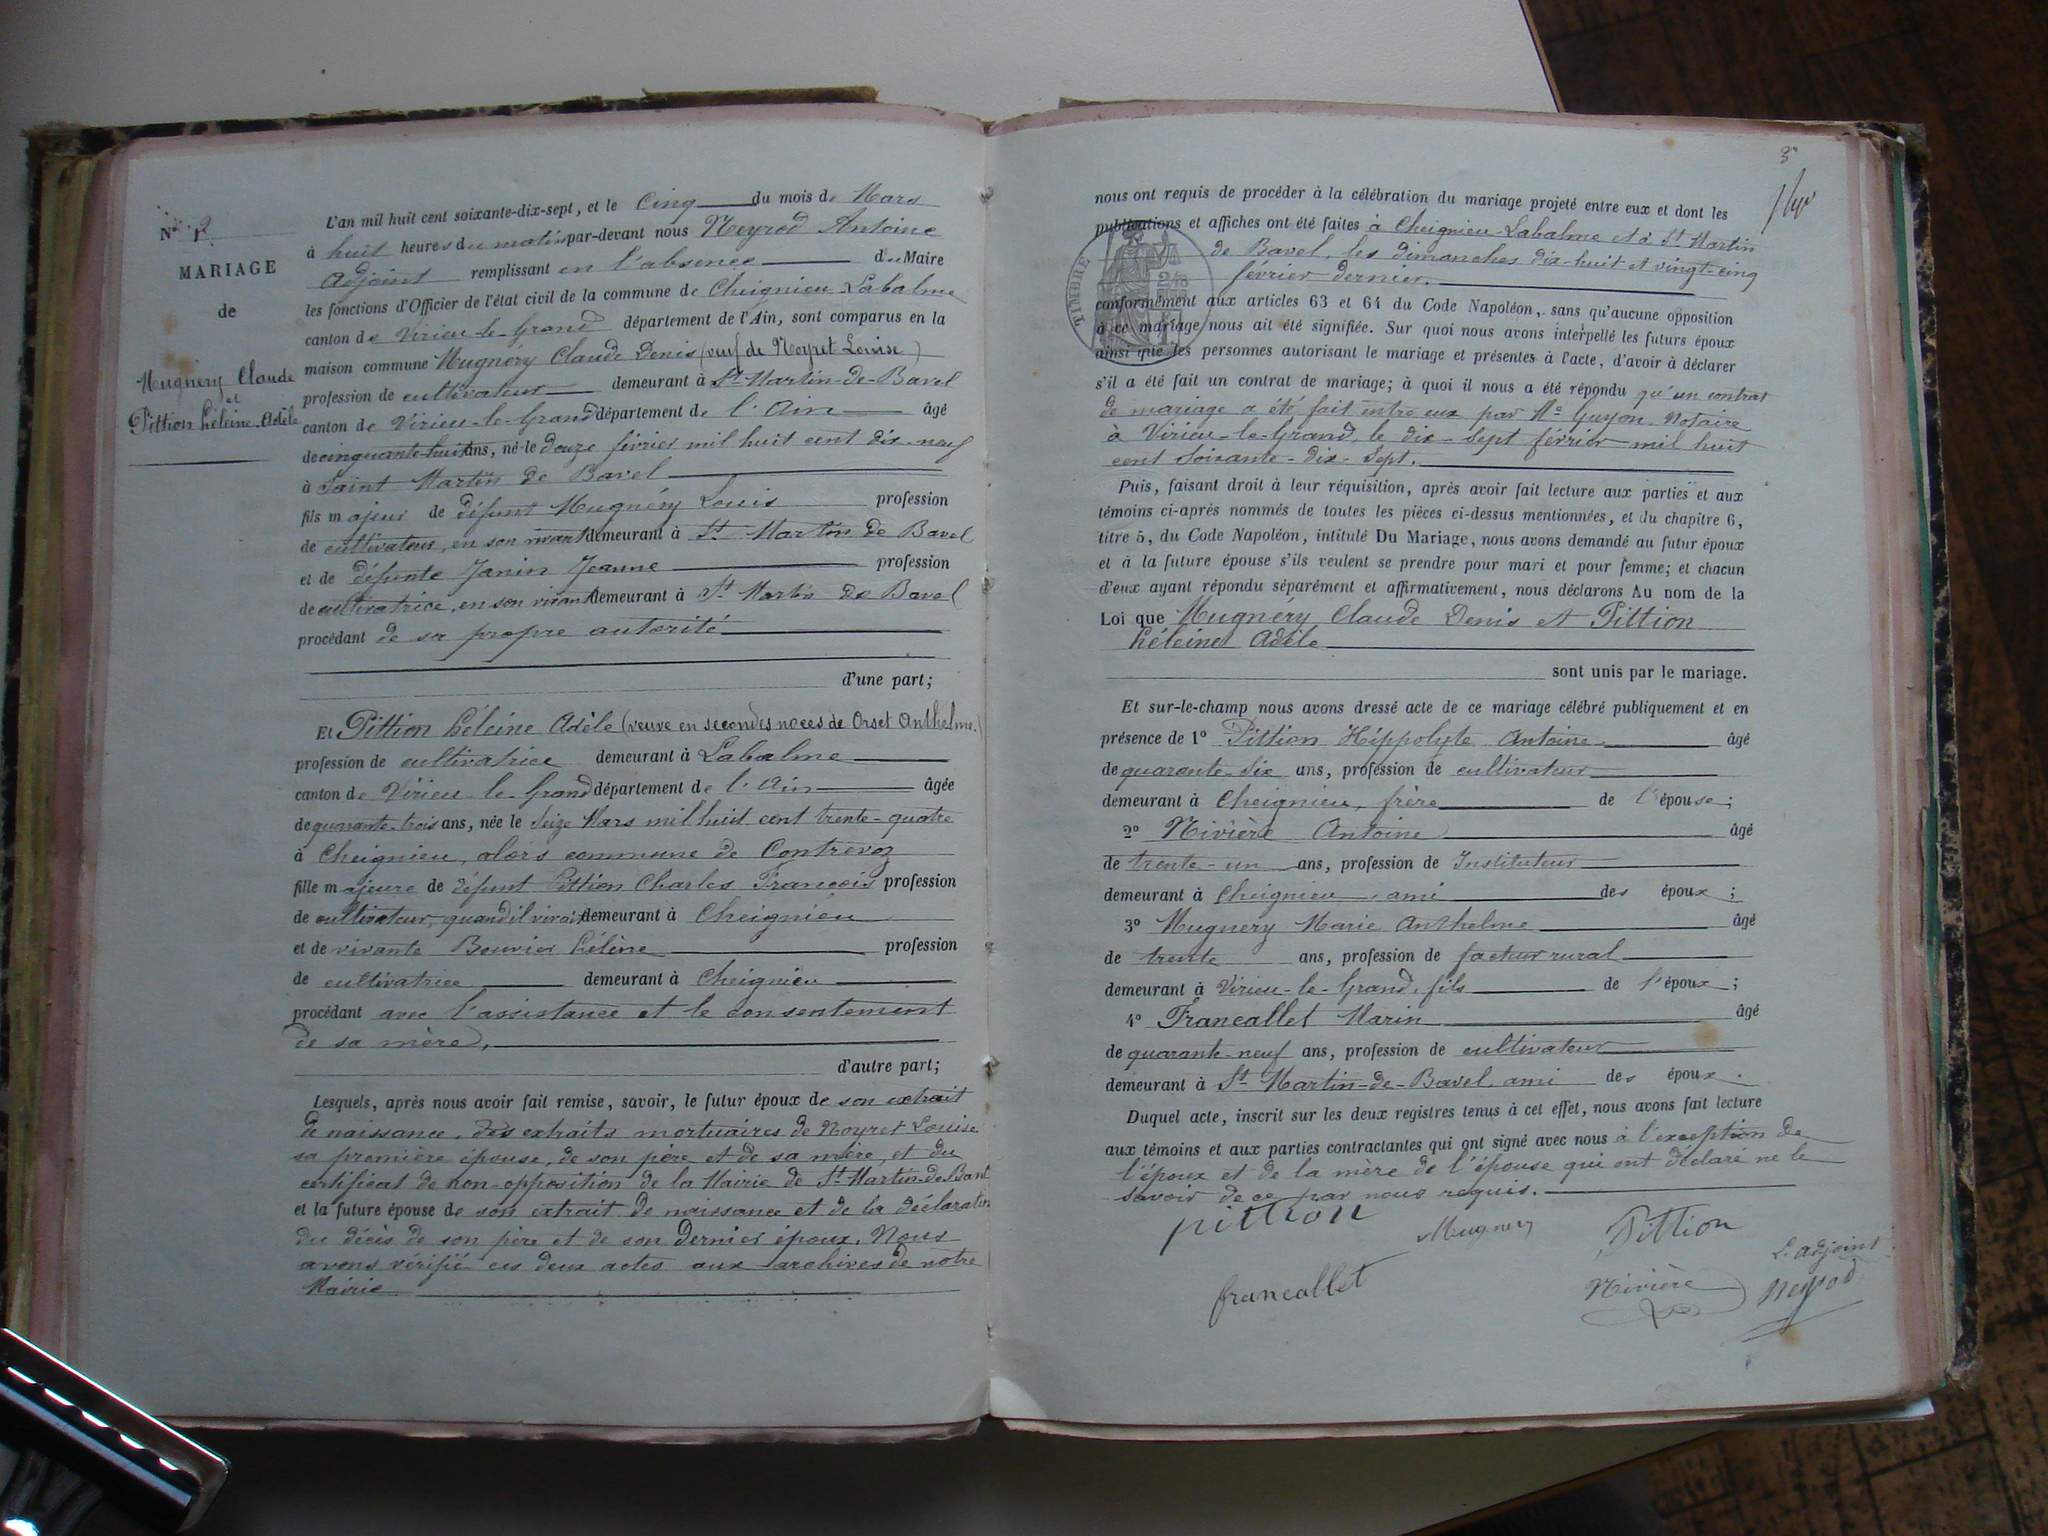 N° 2.
MARIAGE
de
Mugnéry Claude
et
Pittion héleine Adèle
L'an mil huit cent soixante-dix-sept, et le Cinq du mois de Mars
à huit heures du matin par-devant nous Neyrod Antoine
Adjoint remplissant en l'absence du Maire
les fonctions d'Officier de l'état civil de la commune de Cheignieu-Labalme
canton de Virieu-le-Grand département de l'Ain, sont comparus en la
maison commune Mugnéry Claude Denis (veuf de Neyret Louise)
profession de cultivateur demeurant à St Martin-de-Bavel
canton de Virieu-le-Grand département de l'Ain âgé
de cinquante-huit ans, né le douze février mil huit cent dix-neuf
à Saint Martin de Bavel
fils majeur de défunt Mugnéry Louis profession
de cultivateur, en son vivant demeurant à St Martin de Bavel
et de défunte Janin Jeanne profession
de cultivatrice, en son vivant demeurant à St Martin de Bavel
procédant de sa propre autorité
d'une part;
Et Pittion héleine Adèle (veuve en secondes noces de Orset Anthelme.)
profession de cultivatrice demeurant à Labalme
canton de Virieu-le-Grand département de l'Ain âgée
de quarante-trois ans, née le seize Mars mil huit cent trente-quatre
à Cheignieu, alors commune de Contrevoz
fille majeure de défunt Pittion Charles François profession
de cultivateur, quand il vivait demeurant à Cheignieu
et de vivante Bouvier hélène profession
de cultivatrice demeurant à Cheignieu
procédant avec l'assistance et le consentement
de sa mère,
d'autre part;
Lesquels, après nous avoir fait remise, savoir, le futur époux de son extrait
de naissance, des extraits mortuaires de Neyret Louise
sa première épouse, de son père et de sa mère, et du
certificat de non-opposition de la Mairie de St Martin-de-Bavel
et la future épouse de son extrait de naissance et de la déclaration
du décès de son père et de son dernier époux. Nous
avons vérifié ces deux actes aux archives de notre
Mairie
3
nous ont requis de procéder à la célébration du mariage projeté entre eux et dont les
publications et affiches ont été faites à Cheignieu-Labalme et à St Martin
de Bavel, les dimanches dix-huit et vingt-cinq
février dernier.
TIMBRE
conformément aux articles 63 et 64 du Code Napoléon, sans qu'aucune opposition
à ce mariage nous ait été signifiée. Sur quoi nous avons interpellé les futurs époux
ainsi que les personnes autorisant le mariage et présentes à l'acte, d'avoir à déclarer
s'il a été fait un contrat de mariage; à quoi il nous a été répondu qu'un contrat
de mariage a été fait entre eux par Me Guyon Notaire
à Virieu-le-Grand, le dix-sept février mil huit
cent soixante-dix-sept.
Puis, faisant droit à leur réquisition, après avoir fait lecture aux parties et aux
témoins ci-après nommés de toutes les pièces ci-dessus mentionnées, et du chapitre 6,
titre 5, du Code Napoléon, intitulé Du Mariage, nous avons demandé au futur époux
et à la future épouse s'ils veulent se prendre pour mari et pour femme; et chacun
d'eux ayant répondu séparément et affirmativement, nous déclarons Au nom de la
Loi que Mugnéry Claude Denis et Pittion
héleine Adèle
sont unis par le mariage.
Et sur-le-champ nous avons dressé acte de ce mariage célébré publiquement et en
présence de 1° Pittion Hippolyte Antoine âgé
de quarante-six ans, profession de cultivateur
demeurant à Cheignieu, frère de l'épouse;
2° Nivière Antoine âgé
de trente-un ans, profession de Instituteur
demeurant à Cheignieu, ami des époux;
3° Mugnery Marie Anthelme âgé
de trente ans, profession de facteur rural
demeurant à Virieu-le-Grand, fils de l'époux;
4° Francallet Marin âgé
de quarante-neuf ans, profession de cultivateur
demeurant à St Martin-de-Bavel, ami des époux.
Duquel acte, inscrit sur les deux registres tenus à cet effet, nous avons fait lecture
aux témoins et aux parties contractantes qui ont signé avec nous à l'exception de
l'époux et de la mère de l'épouse qui ont déclaré ne le
savoir de ce par nous requis.
pittion Mugnery Pittion
L'adjoint
francallet Nivière Neyrod